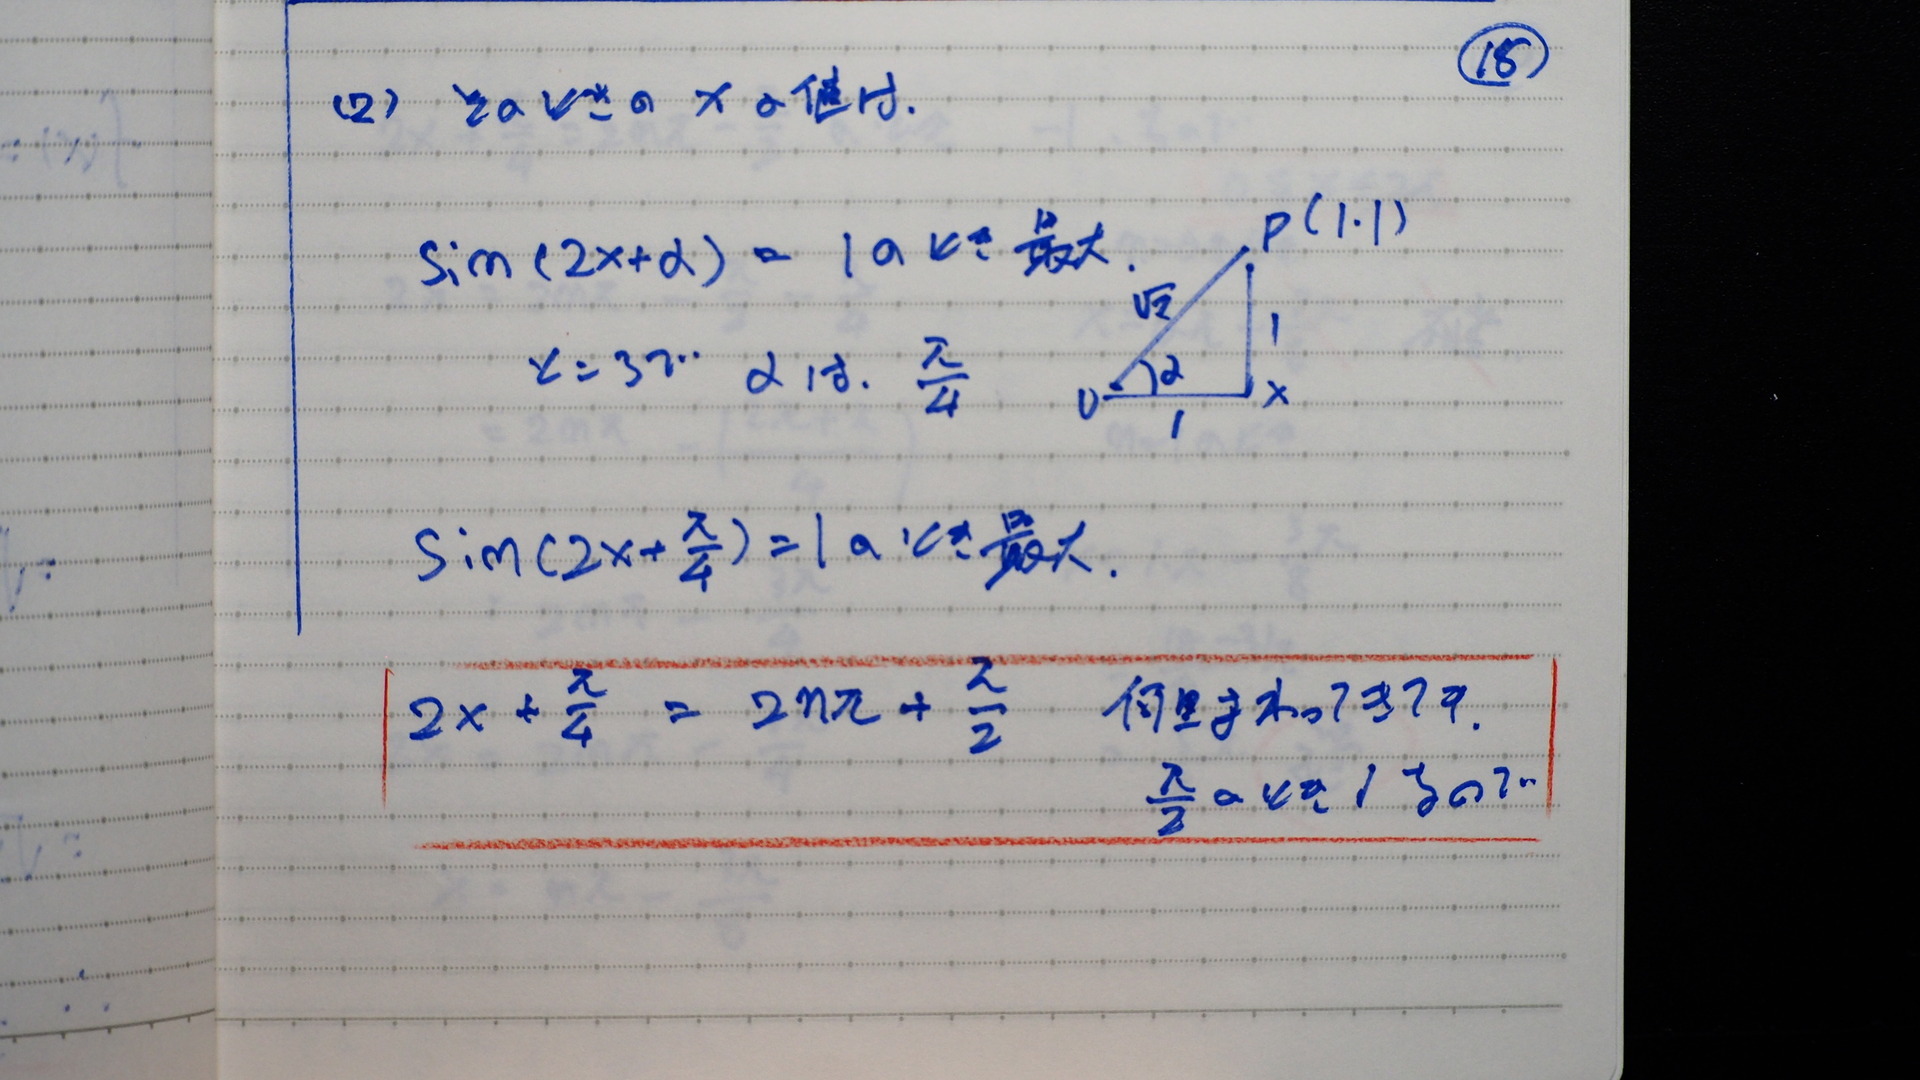 18
(2) そのときの xの値は.
sin(2x+α) = 1のとき 最大.
P(1.1)
√2
1
ところで… αは. π/4
α
O
x
1
sin(2x+π/4)=1のとき最大.
2x + π/4 = 2nπ + π/2 何回まわってきても.
π/2のとき1なので…